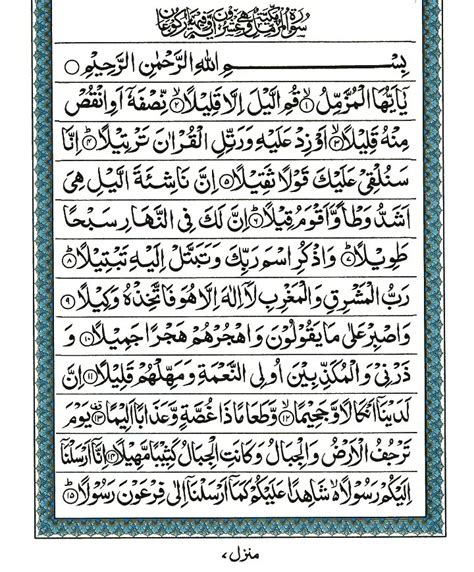 سُوْرَةُ الْمُزَّمِّلِ مَكِّيَّةٌ وَّهِيَ عِشْرُوْنَ اٰيَةً
بِسْمِ اللهِ الرَّحْمٰنِ الرَّحِيْمِ
يٰۤاَيُّهَا الْمُزَّمِّلُ ۙ﴿۱﴾ قُمِ الَّيْلَ اِلَّا قَلِيْلًا ۙ﴿۲﴾ نِّصْفَهٗۤ اَوِ انْقُصْ
مِنْهُ قَلِيْلًا ۙ﴿۳﴾ اَوْ زِدْ عَلَيْهِ وَرَتِّلِ الْقُرْاٰنَ تَرْتِيْلًا ؕ﴿۴﴾ اِنَّا
سَنُلْقِيْ عَلَيْكَ قَوْلًا ثَقِيْلًا ﴿۵﴾ اِنَّ نَاشِئَةَ الَّيْلِ هِيَ
اَشَدُّ وَطْاً وَّاَقْوَمُ قِيْلًا ؕ﴿۶﴾ اِنَّ لَكَ فِي النَّهَارِ سَبْحًا
طَوِيْلًا ؕ﴿۷﴾ وَاذْكُرِ اسْمَ رَبِّكَ وَتَبَتَّلْ اِلَيْهِ تَبْتِيْلًا ؕ﴿۸﴾
رَبُّ الْمَشْرِقِ وَالْمَغْرِبِ لَاۤ اِلٰهَ اِلَّا هُوَ فَاتَّخِذْهُ وَكِيْلًا ﴿۹﴾
وَاصْبِرْ عَلٰى مَا يَقُوْلُوْنَ وَاهْجُرْهُمْ هَجْرًا جَمِيْلًا ﴿۱۰﴾ وَ
ذَرْنِيْ وَالْمُكَذِّبِيْنَ اُولِي النَّعْمَةِ وَمَهِّلْهُمْ قَلِيْلًا ﴿۱۱﴾ اِنَّ
لَدَيْنَاۤ اَنْكَالًا وَّجَحِيْمًا ۙ﴿۱۲﴾ وَّطَعَامًا ذَا غُصَّةٍ وَّعَذَابًا اَلِيْمًا ﴿۱۳﴾ يَوْمَ
تَرْجُفُ الْاَرْضُ وَالْجِبَالُ وَكَانَتِ الْجِبَالُ كَثِيْبًا مَّهِيْلًا ﴿۱۴﴾ اِنَّاۤ اَرْسَلْنَاۤ
اِلَيْكُمْ رَسُوْلًا ۙ شَاهِدًا عَلَيْكُمْ كَمَاۤ اَرْسَلْنَاۤ اِلٰى فِرْعَوْنَ رَسُوْلًا ؕ﴿۱۵﴾
منزل ۷